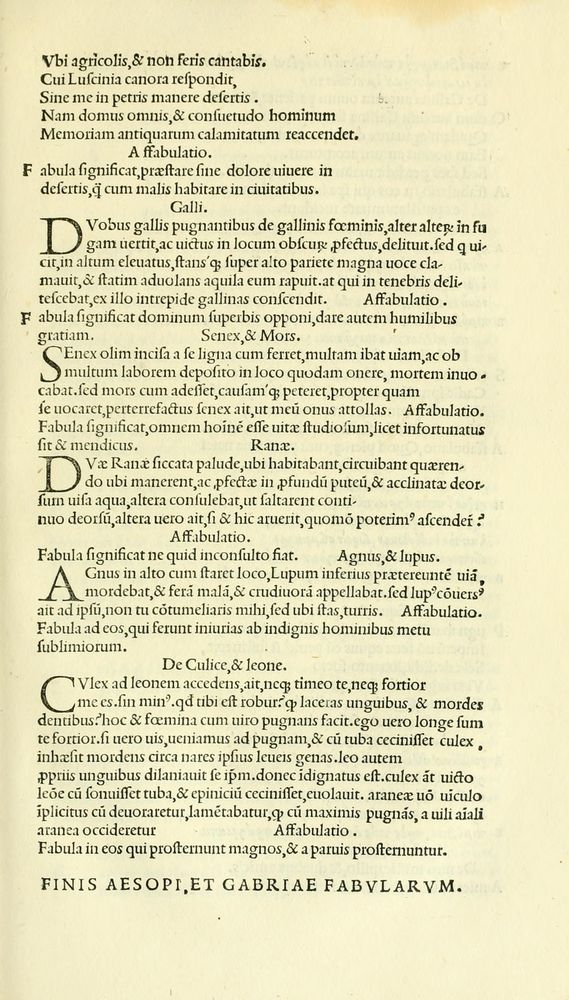 Vbi agricolis,& non feris cantabis.
Cui Luſcinia canora reſpondit,
Sine me in petris manere deſertis.
Nam domus omnis,& conſuetudo hominum
Memoriam antiquarum calamitatum reaccendet.
Affabulatio.
Fabula ſignificat,præſtare ſine dolore uiuere in
deſertis,q̃ cum malis habitare in ciuitatibus.
Galli.
DVobus gallis pugnantibus de gallinis fœminis,alter alterꝝ in fu
gam uertit,ac uictus in locum obſcurꝝ ꝓfectus,delituit.ſed q ui-
cit,in altum eleuatus,ſtans'q; ſuper alto pariete magna uoce cla-
mauit,& ſtatim aduolans aquila eum rapuit.at qui in tenebris deli-
teſcebat,ex illo intrepide gallinas conſcendit. Affabulatio.
Fabula ſignificat dominum ſuperbis opponi,dare autem humilibus
gratiam. Senex,& Mors.
SEnex olim inciſa a ſe ligna cum ferret,multam ibat uiam,ac ob
multum laborem depoſito in loco quodam onere, mortem inuo-
cabat.ſed mors cum adeſſet,cauſam'q; peteret,propter quam
ſe uocaret,perterrefactus ſenex ait,ut meũ onus attollas. Affabulatio.
Fabula ſignificat,omnem hoĩnẽ eſſe uitæ ſtudioſum,licet infortunatus
ſit & mendicus. Ranæ.
DVæ Ranæ ſiccata palude,ubi habitabant,circuibant quæren-
do ubi manerent,ac ꝓfectæ in ꝓfundũ puteũ,& acclinatæ deor-
ſum uiſa aqua,altera conſulebat,ut ſaltarent conti-
nuo deorſũ,altera uero ait,ſi & hic aruerit,quomõ poterimꝰ aſcender̃?
Affabulatio.
Fabula ſignificat ne quid inconſulto fiat. Agnus,& lupus.
AGnus in alto cum ſtaret loco,Lupum inferius prætereuntẽ uiã,
mordebat,& ferã malã,& crudiuorã appellabat.ſed lupꝰ cõuerſꝰ
ait ad ipſũ,non tu cõtumeliaris mihi,ſed ubi ſtas,turris. Affabulatio.
Fabula ad eos,qui ferunt iniurias ab indignis hominibus metu
ſublimiorum.
De Culice,& leone.
CVlex ad leonem accedens,ait,neq; timeo te,neq; fortior
me es.ſin minꝰ.qd̃ tibi eſt robur?ꝙ laceras unguibus, & mordes
dentibus?hoc & fœmina cum uiro pugnans facit.ego uero longe ſum
te fortior.ſi uero uis,ueniamus ad pugnam,& cũ tuba ceciniſſet culex,
inhæſit mordens circa nares ipſius leueis genas.leo autem
ꝓpriis unguibus dilaniauit ſe ip̃m.donec ĩdignatus eſt.culex ãt uicto
leõe cũ ſonuiſſet tuba,& epiniciũ ceciniſſet,euolauit. araneæ uõ uĩculo
ĩplicitus cũ deuoraretur,lamẽtabatur,ꝙ cũ maximis pugnãs, a uili aĩali
aranea occideretur Affabulatio.
Fabula in eos qui proſternunt magnos,& a paruis proſternuntur.
FINIS AESOPI,ET GABRIAE FABVLARVM.